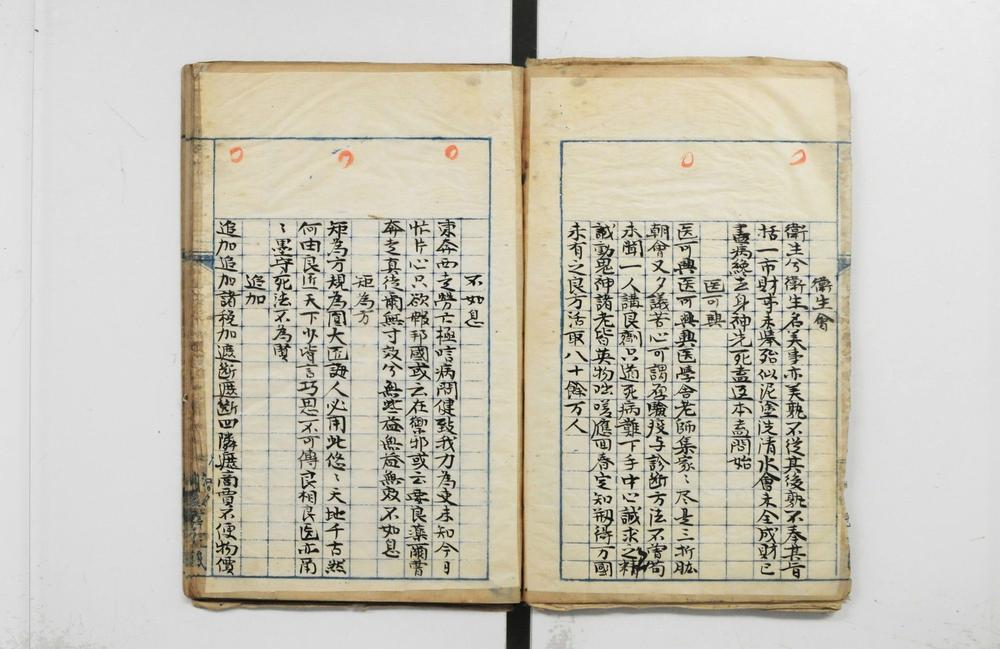 衛生會
衛生兮衛生名美事亦美孰不從其後孰不奉其旨
括一市財事未舉殆似泥塗洗清水會未全成財已
盡病終去身神先死盍返本盍問始
医可興
医可興医可興興医學舍老師集家〻尽是三折肱
朝會又夕議苦心可謂存驗疫与診斷方法不雷同
未聞一人講良劑只道死病難下手中心誠求之精
誠動鬼神諸老皆英物咄嗟應回春定知剏得万國
未有之良方活取八十餘万人
不如息
東奔西走勞亡極唁病問健致我力為吏未知今日
忙片心只欲報邦國或云在禦邪或云要良藥爾曹
奔走真徒爾無寸效兮無些益無益無效不如息
矩為方
矩為方規為圓大匠誨人必用此悠〻天地千古然
何由良匠天下少嘗言巧思不可傳良相良医亦同
〻墨守死法不為賢
追加
追加追加諸税加遮斷遮斷四隣遮商賣不便物價